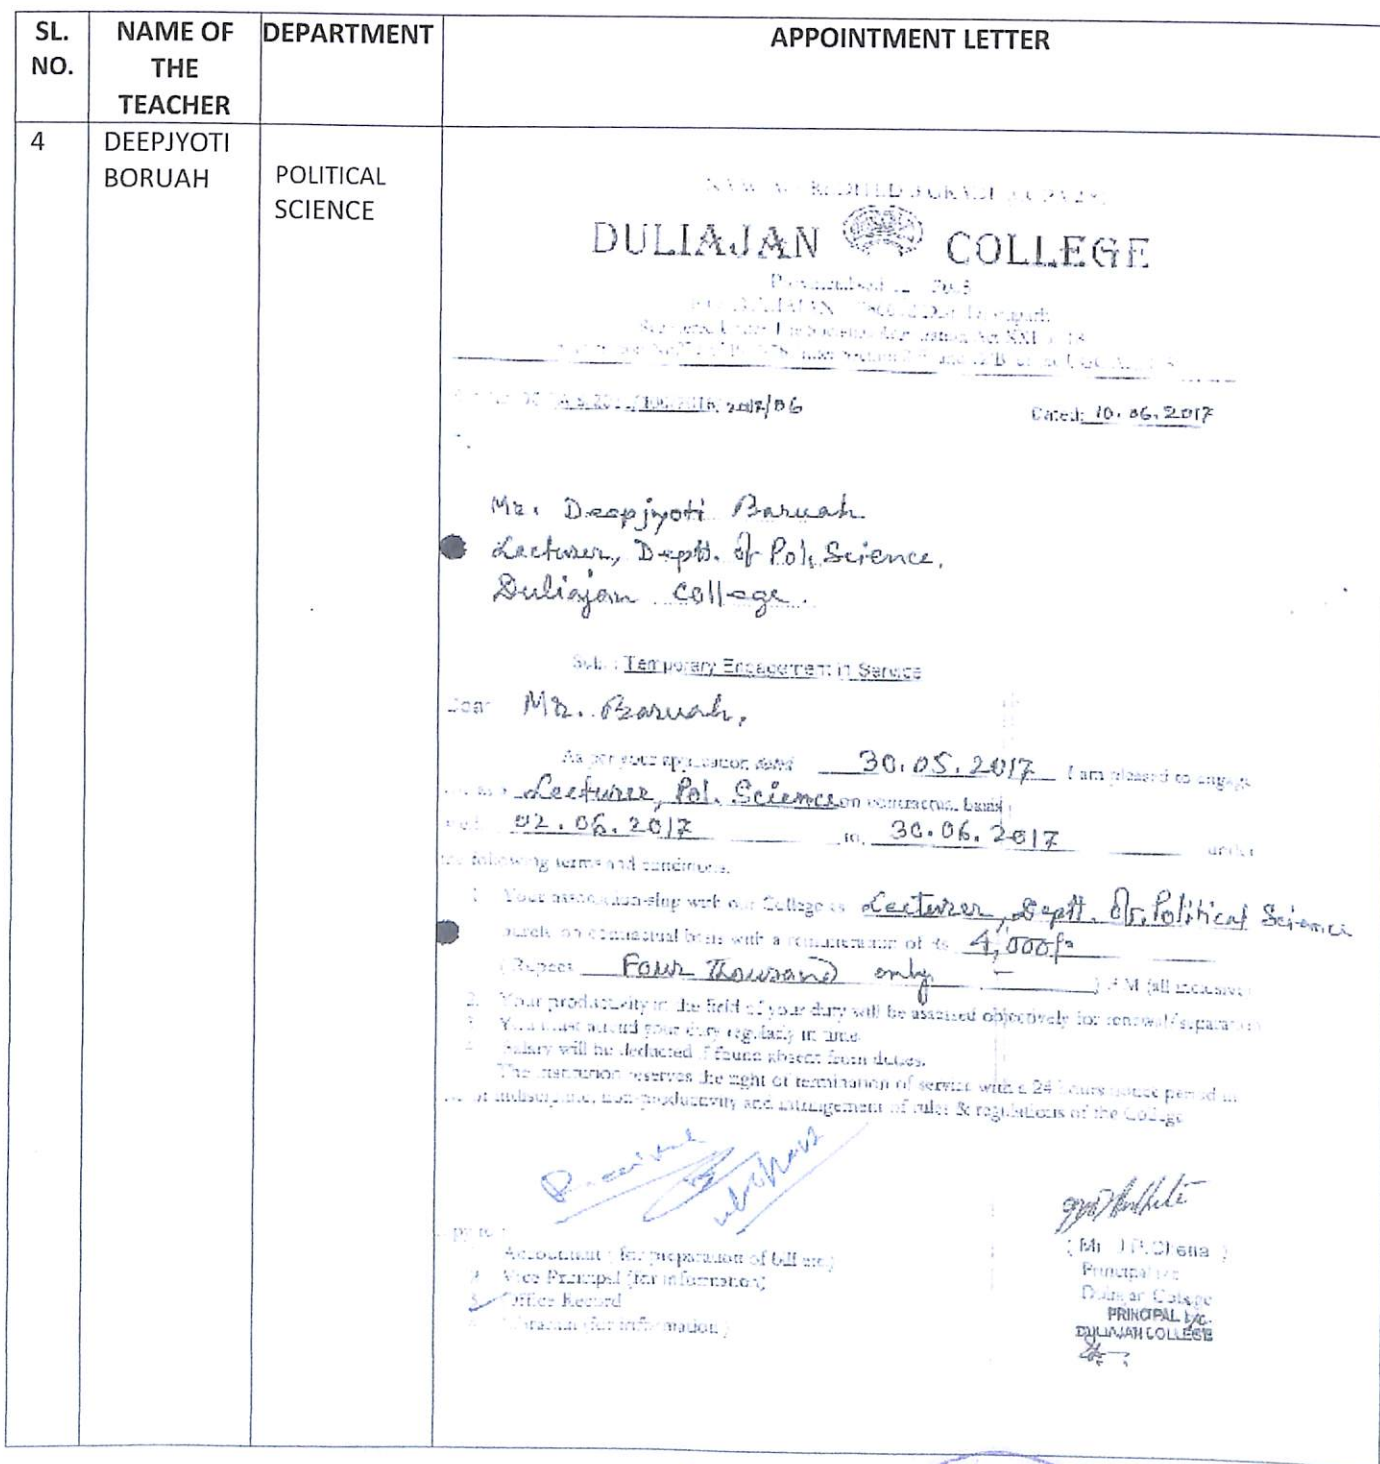 SL. NO.
NAME OF THE TEACHER
DEPARTMENT
APPOINTMENT LETTER
4
DEEPJYOTI
BORUAH
POLITICAL
SCIENCE
DULIAJAN COLLEGE
2017/06
Dated: 10.06.2017
Mr. Deepjyoti Baruah
Lecturer, Deptt. of Pol. Science.
Duliajan College.
Sub. : Temporary Engagement in Service
Dear Mr. Baruah,
As per your application dated 30.05.2017 I am pleased to engage
Lecturer, Pol. Science on contractual basis
02.06.2017 to, 30.06.2017 under
the following terms and conditions.
1. Your association-ship with our College as Lecturer, Deptt. Of Political Science
purely on contractual basis with a remuneration of Rs 4,000/-
(Rupees Four Thousand only - ) P.M (all inclusive)
2. Your productivity in the field of your duty will be assessed objectively for renewal/separation
3. You must attend your duty regularly in time.
4. Salary will be deducted if found absent from duties.
The institution reserves the right of termination of service with a 24 hours notice period in
of indiscipline, non-productivity and infringement of rules & regulations of the College
Received
Copy to :
Accountant (for preparation of bill etc)
2. Vice Principal (for information)
3. Office Record
Librarian (for information)
Principal i/c
Duliajan College
PRINCIPAL I/C.
DULIAJAN COLLEGE